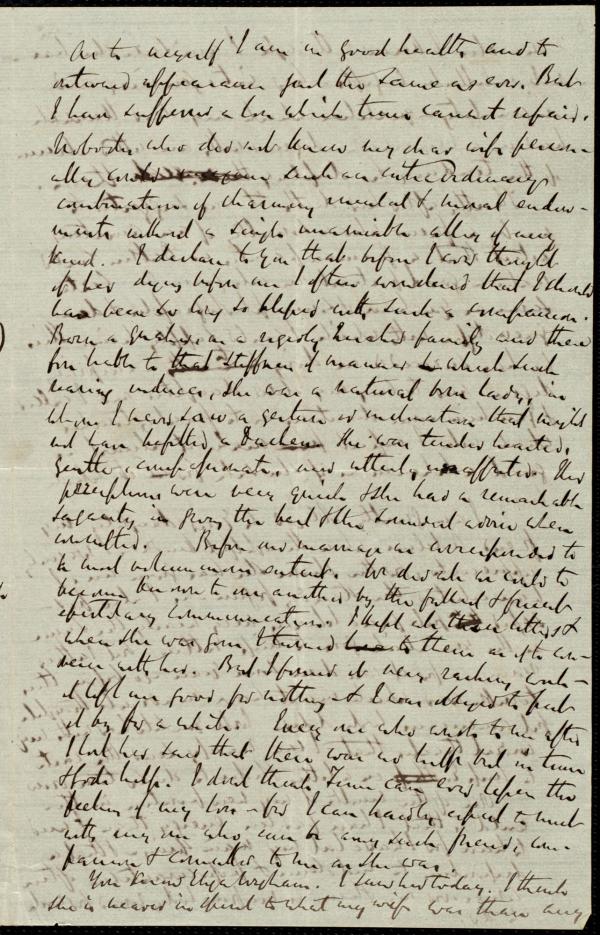 As to myself I am in good health and to
outward appearance just the same as ever. But
I have suffered a loss which time cannot repair.
Nobody who did not know my dear wife person-
ally could such an extraordinary
combination of charming mental & moral endow-
ments without a single unamiable alloy of any
kind. I declare to you that before I ever thought
of her dying before me I often wondered that I should
have been so long so blessed with such a companion.
Born a Quaker, in a rigidly Quaker family and there
fore liable to that stiffness of manner which such
rearing induces, she was a natural born lady, in
whom I never saw a gesture or inclination that might
not have befitted a Duchess. She was tender hearted,
gentle, compassionate, and utterly unaffected. Her
perceptions were very quick & she had a remarkable
sagacity in giving the best & the soundest advice when
consulted. Before our marriage we corresponded to
a most voluminous extent. We did all we could to
become known to one another by the fullest & freest
epistolary communication. I kept all these letters &
when she was gone I turned to them as if to con-
verse with her. But I found it very racking work -
it left me good for nothing & I was obliged to put
it by for a while. Every one who wrote to me after
I lost her said that there was no help but in time
& God's help. I don't think Time can ever lessen the
feeling of my loss - for I can hardly expect to meet
with any one who can be any such friend, com-
panion & counsellor to me as she was.
You know Eliza Wigham. I saw her today. I think
she is nearer in spirit to what my wife was than any